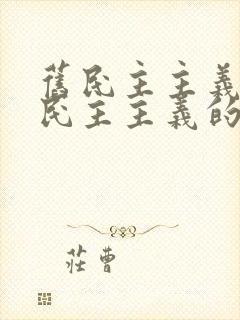 舊民主主義
民主主義的
莊曹